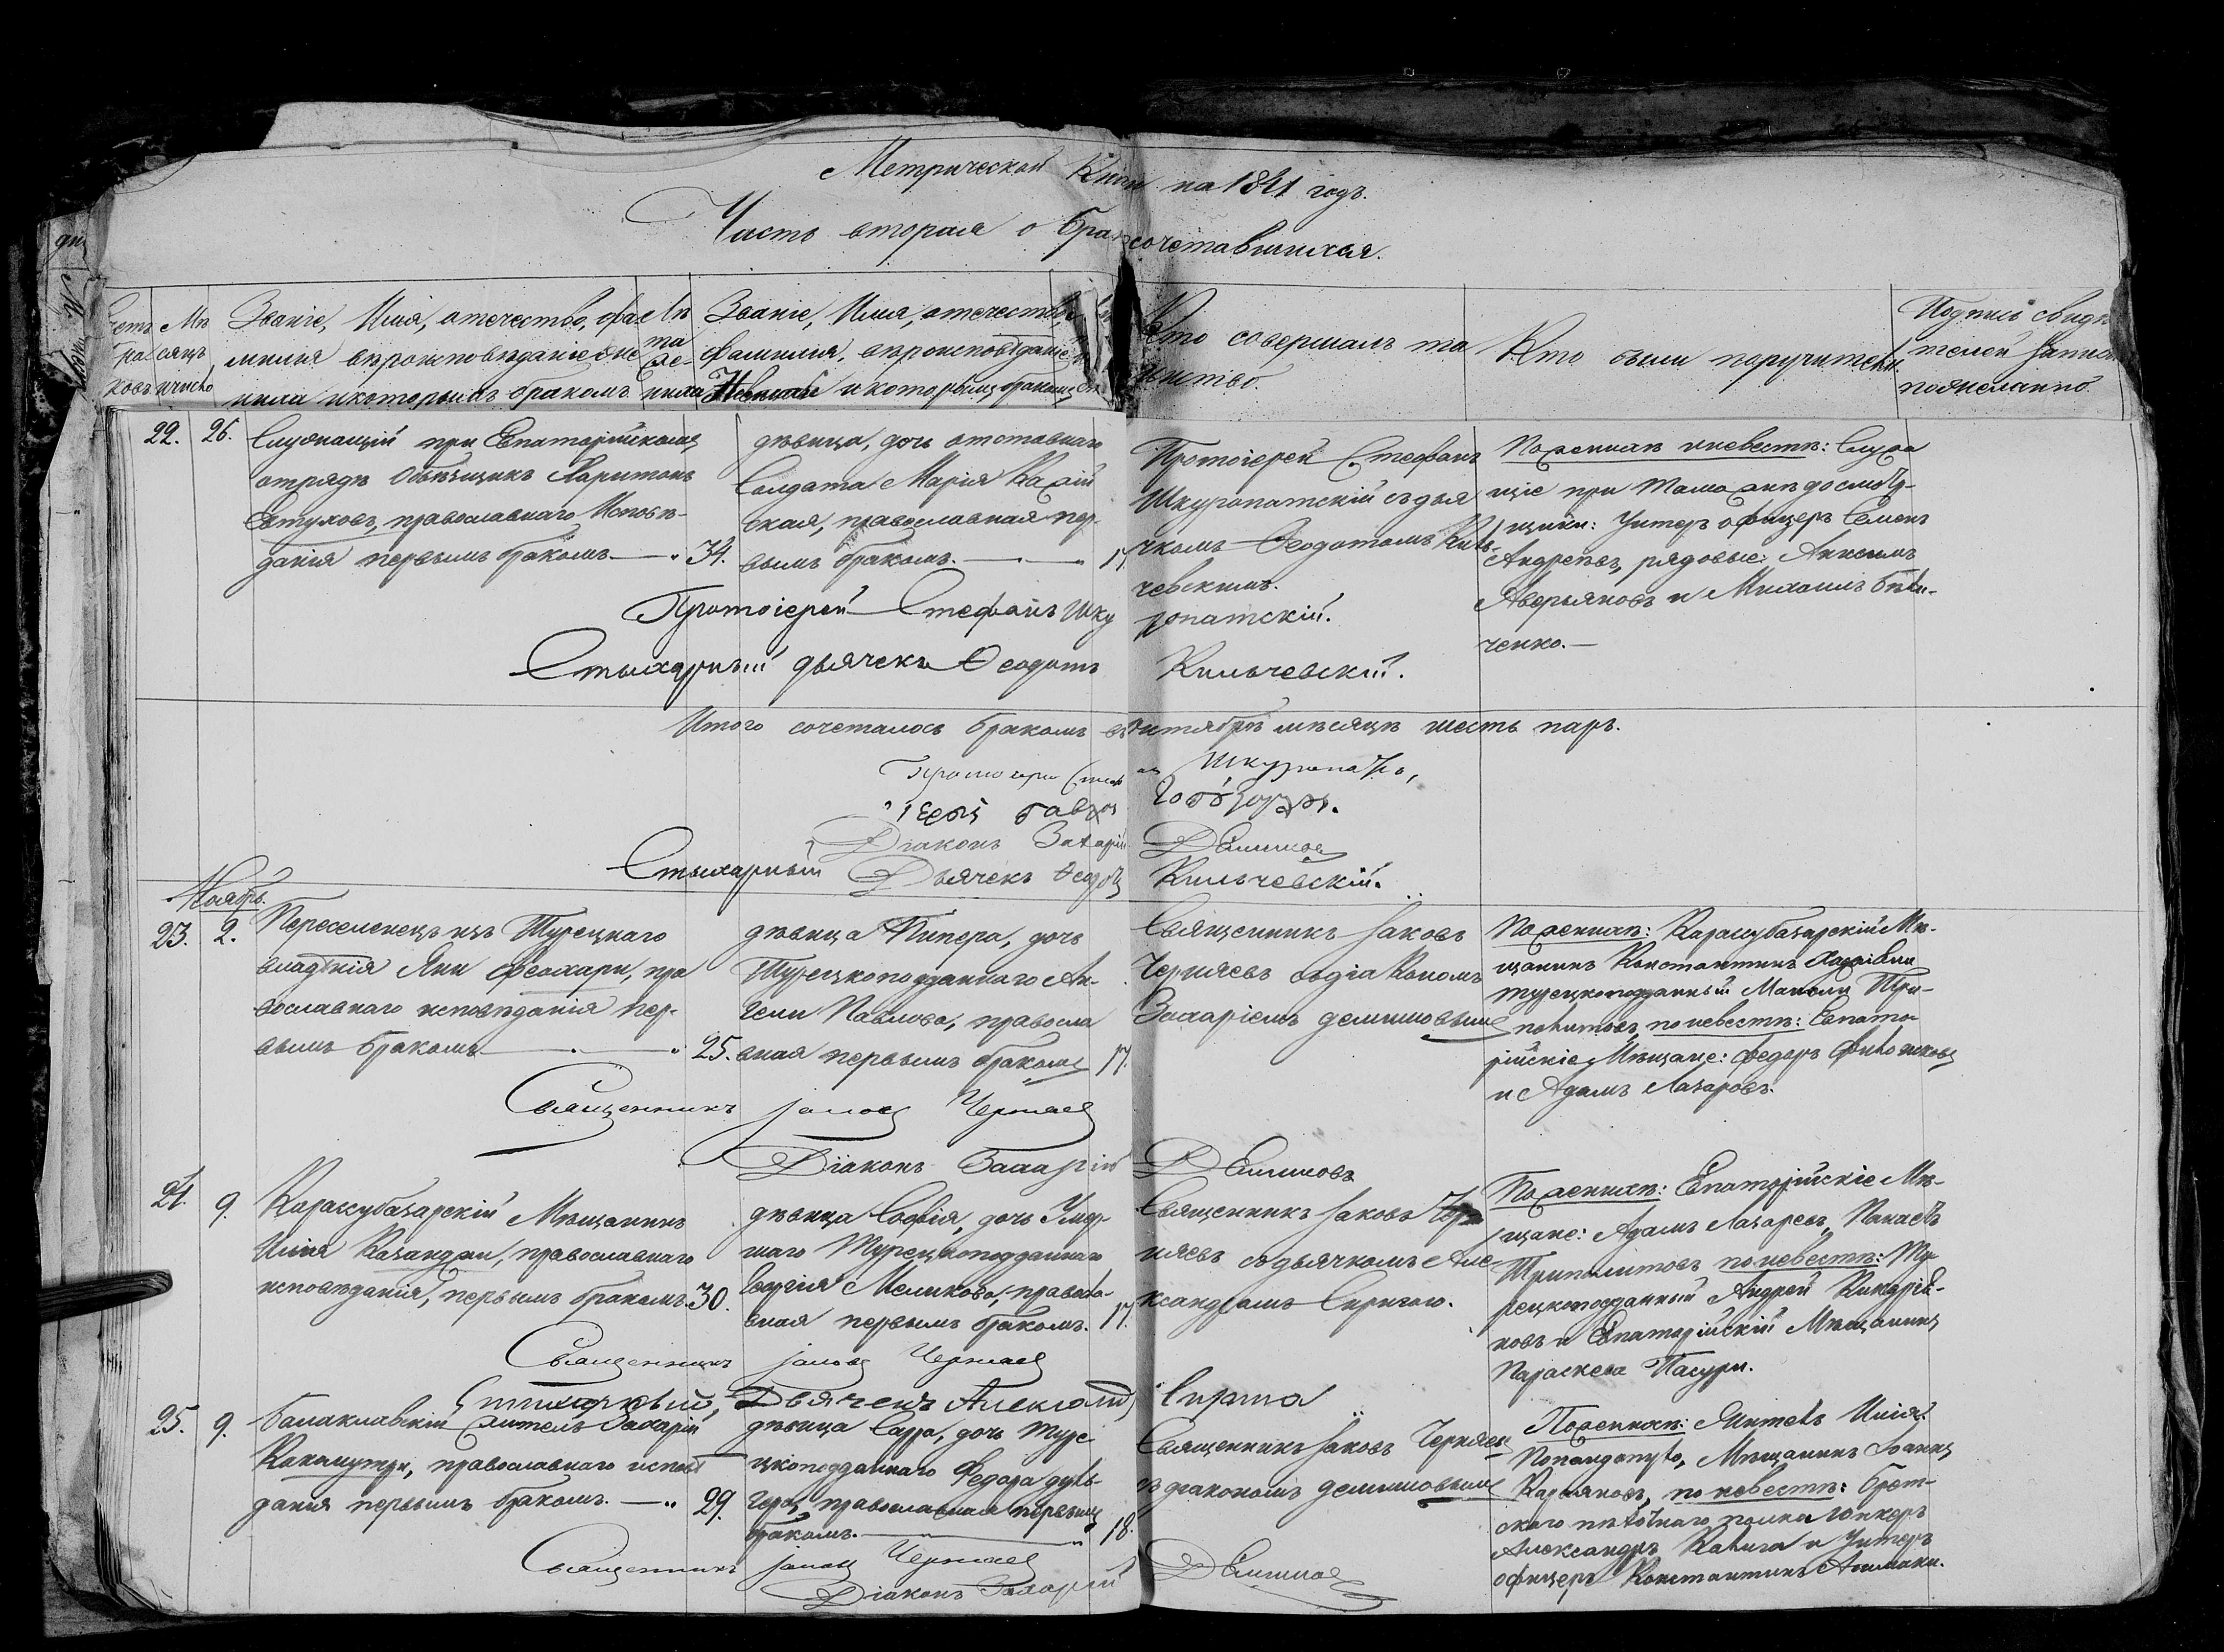 Метрической Книги на 1841 годъ.
Часть вторая о бракосочетавшихся.
Счетъ браковъ
Мѣсяцъ и число
Званіе, Имя, отечество, фамилія вѣроисповѣданіе жениха и которымъ бракомъ.
Лѣта жениха
Званіе, Имя, отечество, фамилія, вѣроисповѣданіе Невѣсты и которымъ бракомъ
Кто совершалъ таинство.
Кто были поручители
Подпись свидѣтелей записи по желанію
22. 26.
Служащій при Евпаторійскомъ
отрядѣ Объѣщикъ Харитонъ
Евтуховъ, православнаго Исповѣ-
данія первымъ бракомъ. — 34.
дѣвица, дочь отставнаго
Солдата Марія
ская, православная пер-
вымъ бракомъ. — 17.
Протоіерей Стефанъ
Шкуропатскій съ дья
чкомъ Ѳеодотомъ Киль-
чевскимъ.
По женихѣ и невѣстѣ: Служа
щіе при Таможнѣ досмотр-
щики: Унтеръ офицеръ Семенъ
Андреевъ, рядовые: Анисимъ
Аверьяновъ и Михаилъ
ченко. —
Протоіерей Стефанъ Шкуропатскій.
Стихарный дьячекъ Ѳеодотъ Кильчевскій.
Итого сочеталось бракомъ въ Октябрѣ мѣсяцѣ шесть паръ.
Протоіерей Стефанъ
Діаконъ Захарій Демишовъ
Стихарный Дьячекъ Ѳеодотъ Кильчевскій.
Ноябрь.
23. 2.
Переселенецъ изъ Турецкаго
владѣнія Яни Феохари, пра
вославнаго исповѣданія пер-
вымъ бракомъ — 25.
дѣвица Пипера, дочь
Турецкоподданнаго Ан-
гели Павлова, правосла
вная первымъ бракомъ 17.
Священникъ Іаковъ
Черняевъ съ діакономъ
Захаріемъ Демишовымъ
По женихѣ: Карасубазарскій Мѣ-
щанинъ Константинъ
турецкоподданный Маноли Три-
политовъ, по невѣстѣ: Евпато-
рійскіе Мѣщане: Федоръ
и Адамъ Лазаровъ.
Священникъ Іаковъ Черняев
Діаконъ Захарій Демишовъ
24. 9.
Карасубазарскій Мѣщанинъ
Илія Казанджи, православнаго
исповѣданія, первымъ бракомъ. 30.
дѣвица Софія, дочь Умер-
шаго Турецкоподданнаго
Георгія Меликова, правосла-
вная первымъ бракомъ. 17.
Священникъ Іаковъ Чер
няевъ съ дьячкомъ Але-
ксандромъ Сиригою.
По женихѣ: Евпаторійскіе Мѣ-
щане: Адамъ Лазаревъ, Панаетъ
Триполитовъ по невѣстѣ: Ту-
рецкоподданный Андрей
новъ и Евпаторійскій Мѣщанинъ
Параскева Пасури.
Священникъ Іаковъ Черняев
Стихарный, Дьячекъ Александръ Сирига
25. 9.
Балаклавскій житель Захарій
православнаго исповѣ
данія первымъ бракомъ. — 29.
дѣвица Сарра, дочь Туре
цкоподданнаго Федора Дуль-
гера, православная первымъ
бракомъ. — 18.
Священникъ Іаковъ Черняевъ
съ діакономъ Демишовымъ
По женихѣ: Житель Илія
Мѣщанинъ Іоаннъ
по невѣстѣ: Брест-
скаго пѣхотнаго полка Юнкеръ
Александръ и Унтеръ
офицеръ Константинъ
Священникъ Іаковъ Черняев
Діаконъ Захарій Демишов